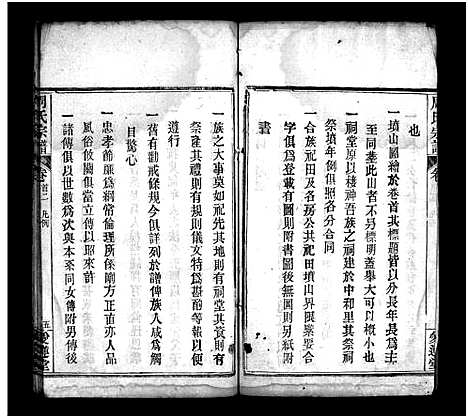 周氏宗譜
卷
也
一墳山圖繪於卷首其標題皆以分長年長爲主
至同塋此山者不另標明蓋舉大可以概小也
祭墳年例俱照各分合同
一祠堂原以棲神吾族之祠建於中和里其祭祠
一合族祀田及各房公共祀田墳山界限槩娶合
字俱爲登載有圖則附書圖後無圖則另紙附
書
一族之大事莫如祀先其地則有祠堂其資則有
祭產其禮則有規則儀文特爲斟酌等報以便
遵行
一舊有勸戒條規今俱詳列於譜俾族人咸爲觸
目驚心
一忠孝節廉爲綱常倫理所係剛方正直亦人品
風俗攸關俱當立傳以昭來許
一諸傳俱以世爲次與本至同女傳附男傳後
周氏宗譜
卷首二
凡例
五
愛蓮堂